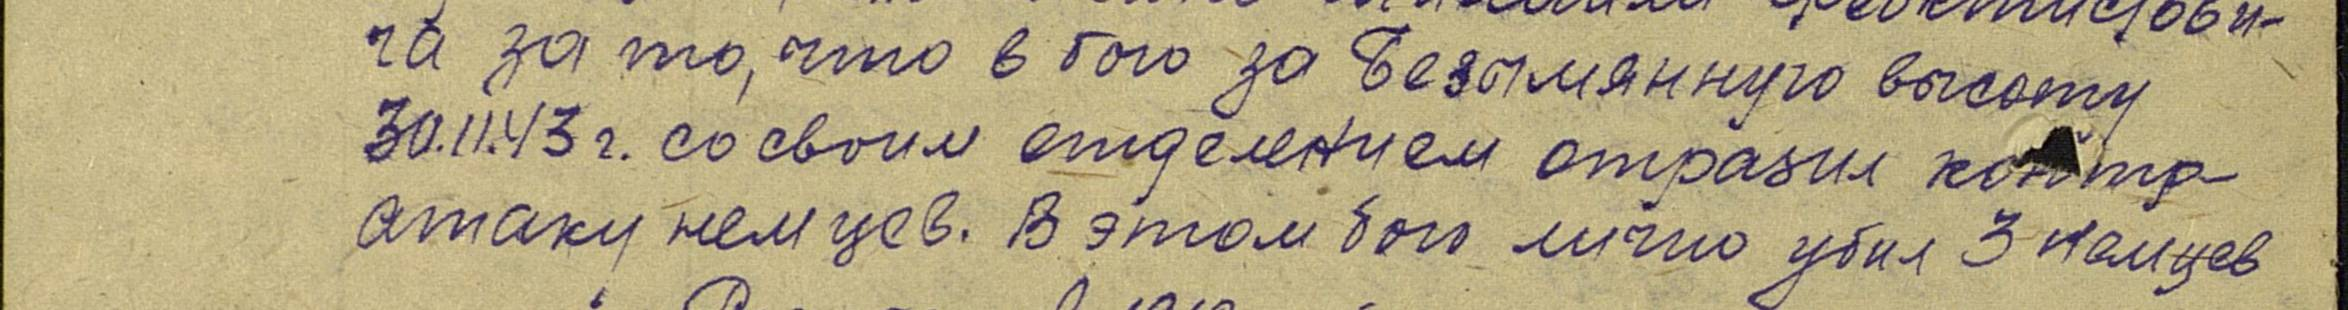 Феоктистови-
ча за то, что в бою за Безымянную высоту
30.11.43 г. со своим отделением отразил контр-
атаку немцев. В этом бою лично убил 3 немцев